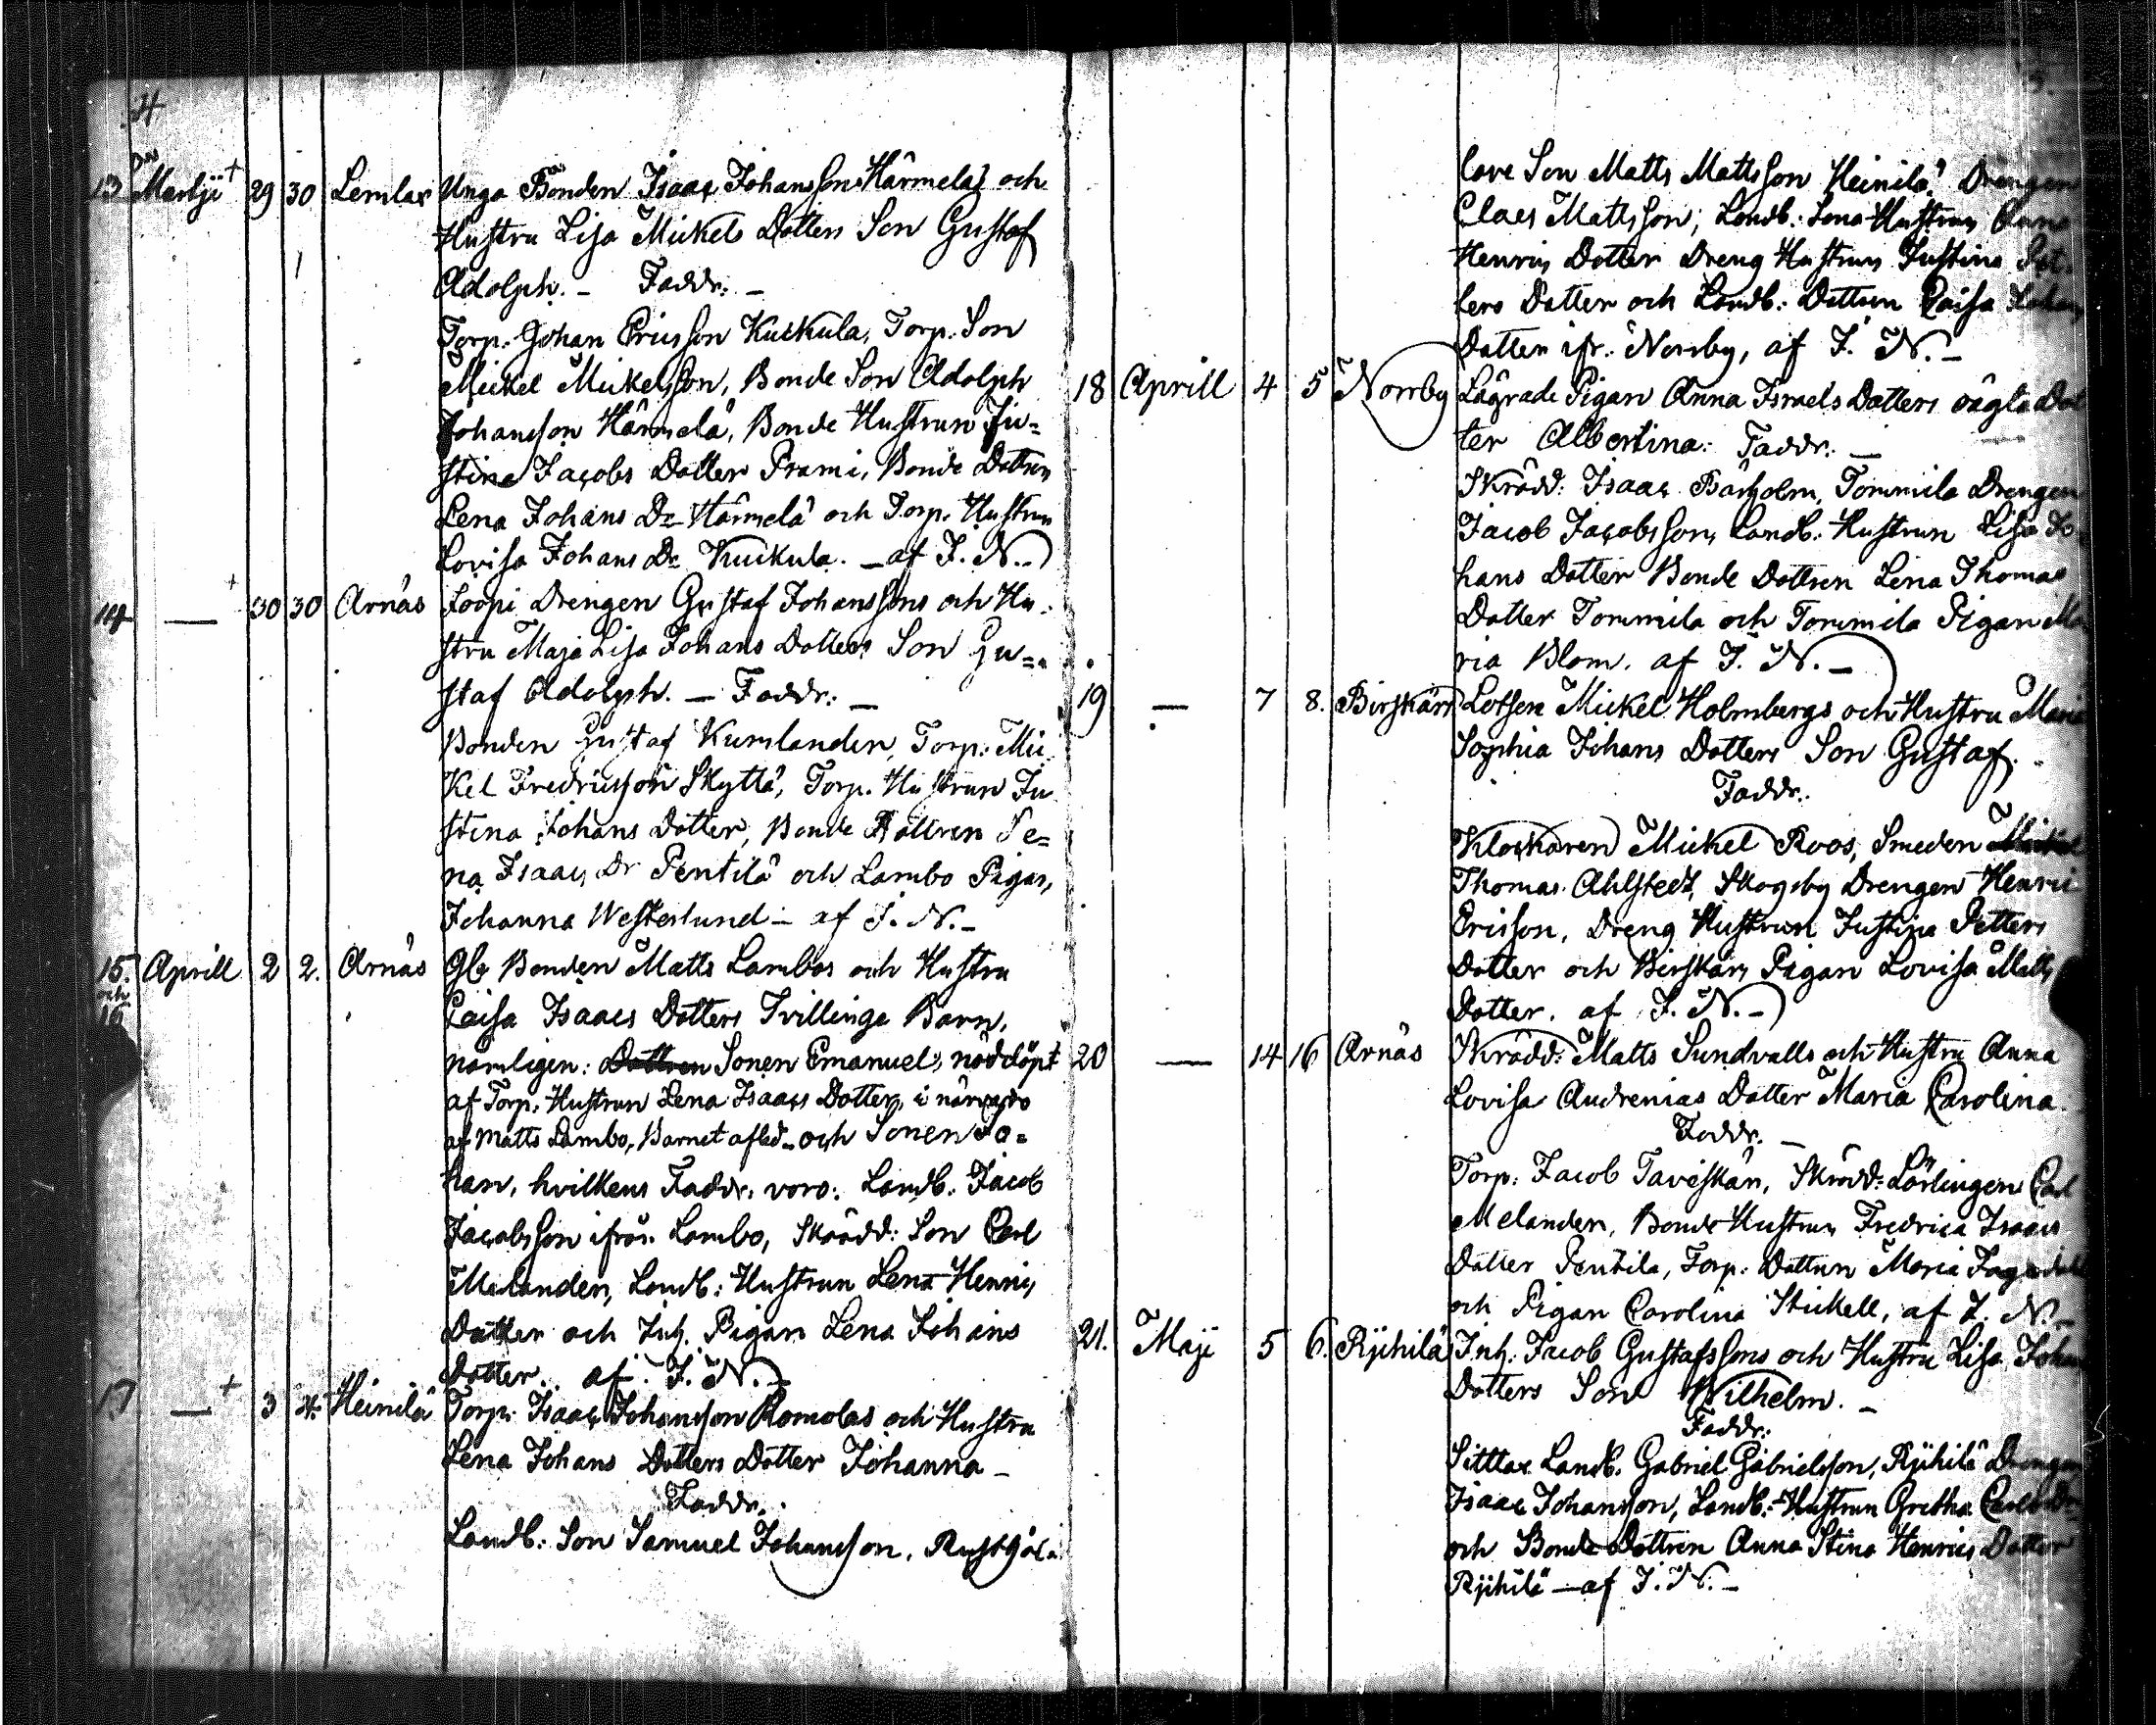 4
13 Martji + 29 30 Lemlax Unga Bonden Isaac Johansson Härmeläs och
Hustru Lisa Mickels Dotters Son Gustaf
Adolph. – Faddr: –
Torp. Johan Ericsson Kuckula, Torp. Son
Mickel Mickelsson, Bonde Son Adolph
Johansson Härmelä, Bonde Hustrun Ju=
stina Jacobs Dotter Prami, Bonde Dottren
Lena Johans Dr Härmelä och Torp. Hustrun
Lovisa Johans Dr Kuckula. – af J. N. –
14 — + 30 30 Arnäs Soopi Drengen Gustaf Johanssons och Hu-
stru Maja Lisa Johans Dotters Son Gu=
staf Adolph. – Faddr: –
Bonden Gustaf Kumlander, Torp. Mic
kel Fredricsson Skyttä, Torp. Hustrun Ju
stina Johans Dotter, Bonde Dottren Le=
na Isaacs Dr Pentilä och Lambo Pigan,
Johanna Westerlund – af J. N. –
15. och 16 Aprill 2 2. Arnäs Glr Bonden Matts Lambos och Hustru
Caisa Isaacs Dotters Tvillinge Barn,
nämligen: Dottren Sonen Emanuel, nöddöpt
af Torp. Hustrun Lena Isaacs Dotter, i närvaro
af Matts Lambo, Barnet afled – och Sonen Jo=
han, hvilkens Faddr. voro: Landb. Jacob
Jacobsson ifrån Lambo, Skrädd: Son Carl
Melander, Landb: Hustrun Lena Henrics
Dotter och Inh. Pigan Lena Johans
Dotter. af J. N. –
17 — + 3 4. Heinilä Torp. Isaac Johansson Romolas och Hustru
Lena Johans Dotters Dotter Johanna –
Faddr.
Landb: Son Samuel Johansson, Rusthål=
lare Son Matts Mattsson Heinilä, Drengen
Claes Mattsson, Landb: Sona Hustrun Anna
Henrics Dotter Dreng Hustrun Justina Pet-
ters Dotter och Landb: Dottren Caisa Johans
Dotter ifr. Norrby, af J. N. –
18 Aprill 4 5 Norrby Lägrade Pigan Anna Israels Dotters oägta Dot
ter Albertina: Faddr: –
Skrädd: Isaac Barkholm, Tommila Drengen
Jacob Jacobsson, Landb: Hustrun Lisa Jo
hans Dotter Bonde Dottren Lena Thomas
Dotter Tommila och Tommila Pigan Ma
ria Blom. af J. N. –
19 — 7 8. Birskär Lotsen Mickel Holmbergs och Hustru Maria
Sophia Johans Dotters Son Gustaf.
Faddr.
Klockaren Mickel Roos, Smeden Mickel
Thomas Ahlstedt, Skogsby Drengen Henric
Ericsson, Dreng Hustrun Justina Petters
Dotter och Birskärs Pigan Lovisa Matts
Dotter. af J. N. –
20 — 14 16 Arnäs Skrädd: Matts Sundvalls och Hustru Anna
Lovisa Audrenias Dotter Maria Carolina.
Faddr. –
Torp: Jacob Taveskär, Skrädd: Lärlingen Carl
Melander, Bonde Hustrun Fredrica Isaacs
Dotter Pentila, Torp: Dottren Maria
och Pigan Carolina Stickell, af J. N. –
21. Maji 5 6. Rjihilä Inh. Jacob Gustafssons och Hustru Lisa Johans
Dotters Son Wilhelm. –
Faddr:
Sittlax Landb. Gabriel Gabrielsson, Rjihilä Drengen
Isaac Johansson, Landb: Hustrun Gretha Carls Dr
och Bonde Dottren Anna Stina Henrics Dotter
Rjihilä – af J. N. –